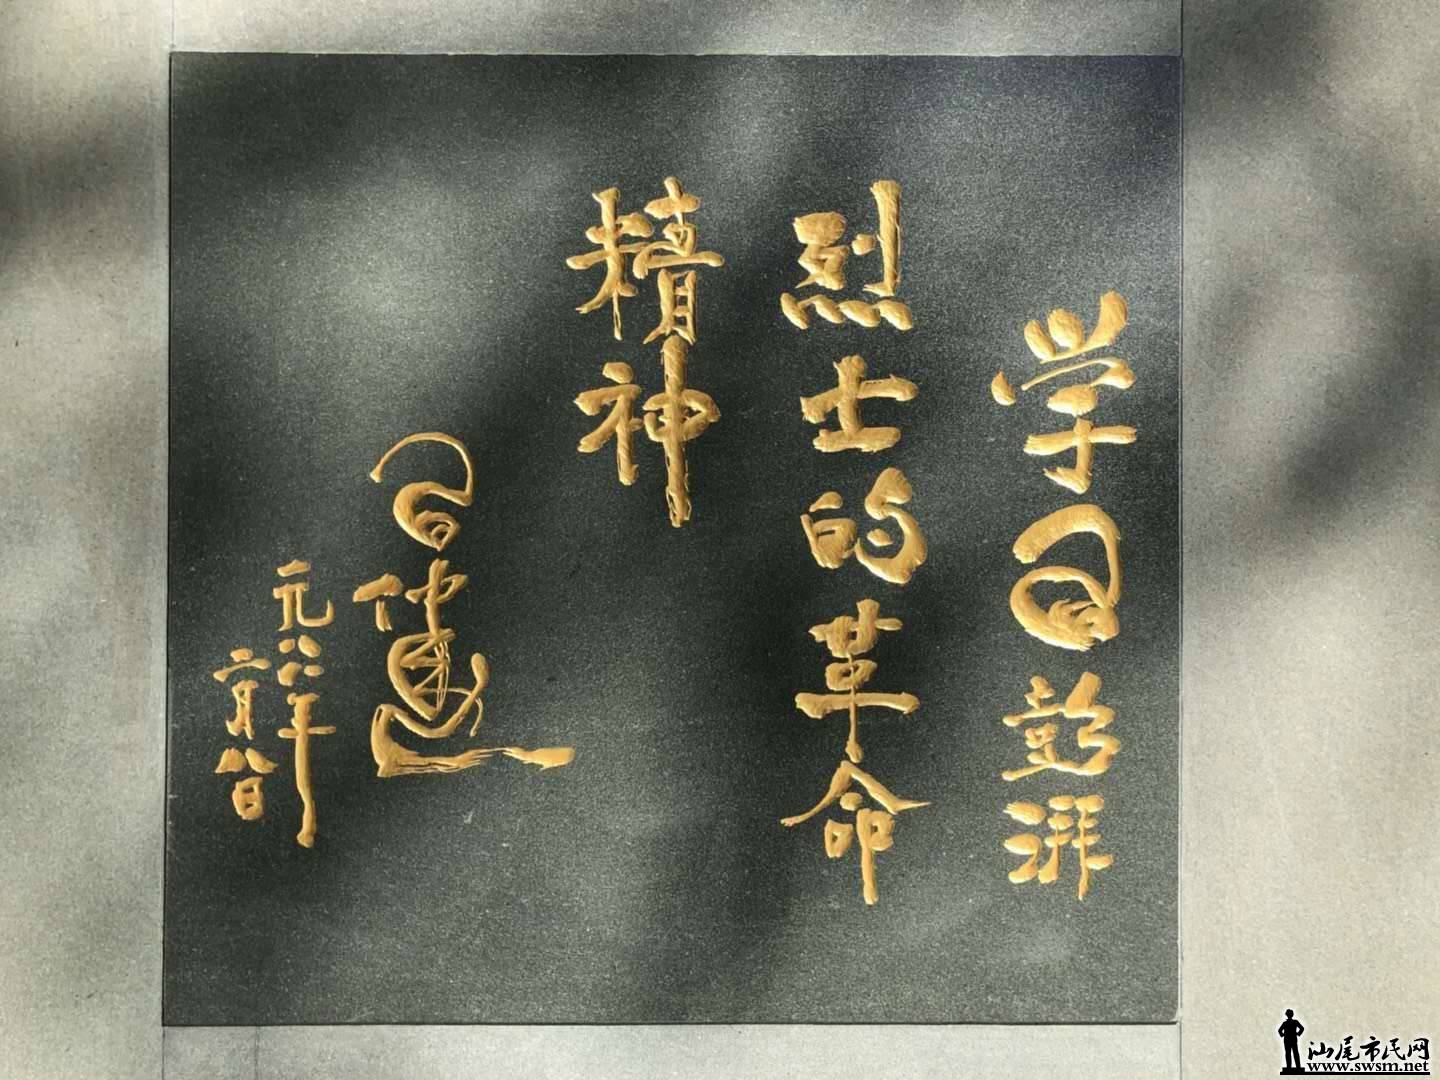 学習彭湃
烈士的革命
精神
習仲勋
一九八六年
二月八日
汕尾市民网
www.swsm.net